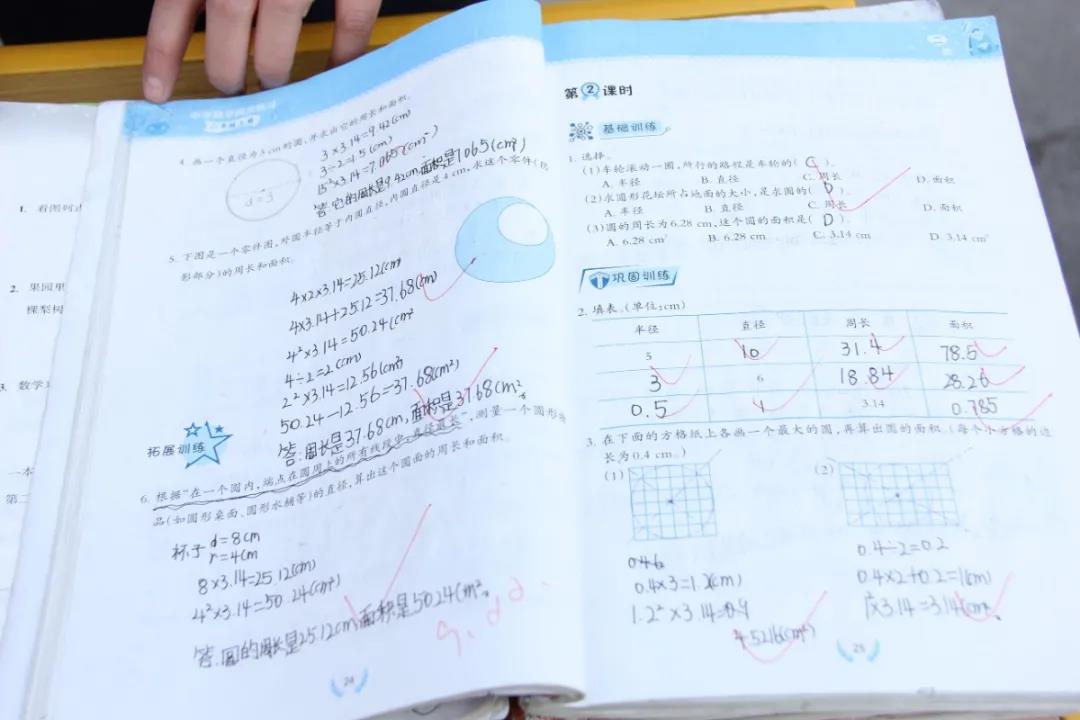 1. 看图列
2. 果园里
棵梨树
3. 数学
一本
第二
4. 画一个直径为3 cm的圆,并求出它的周长和面积。
d=3
3×3.14=9.42(cm)
3÷2=1.5(cm)
1.5²×3.14=7.065(cm²)
答:它的周长是9.42cm,面积是7.065(cm²)
5. 下图是一个零件图,外圆半径等于内圆直径,内圆直径是4 cm,求这个零件(
形部分)的周长和面积。
4×2×3.14=25.12(cm)
4×3.14+25.12=37.68(cm)
4²×3.14=50.24(cm²
4÷2=2(cm)
2²×3.14=12.56(cm²)
50.24-12.56=37.68(cm²)
答:周长是37.68cm,面积是37.68cm²。
拓展训练
6. 根据“在一个圆内,端点在圆周上的所有线段中,直径最长”,测量一个圆形
品(如圆形桌面、圆形水桶等)的直径,算出这个圆面的周长和面积。
杯子 d=8cm
r=4cm
8×3.14=25.12(cm)
4²×3.14=50.24(cm²)
答:圆的周长是25.12cm,面积是50.24cm²。
24
第2课时
基础训练
1. 选择。
(1)车轮滚动一圈,所行的路程是车轮的( C )。
A. 半径 B. 直径 C. 周长 D. 面积
(2)求圆形花坛所占地面的大小,是求圆的( D )。
A. 半径 B. 直径 C. 周长 D. 面积
(3)圆的周长为6.28 cm,这个圆的面积是( D )。
A. 6.28 cm² B. 6.28 cm C. 3.14 cm D. 3.14 cm²
巩固训练
2. 填表。(单位:cm)
半径 直径 周长 面积
5 10 31.4 78.5
3 6 18.84 28.26
0.5 1 3.14 0.785
3. 在下面的方格纸上各画一个最大的圆,再算出圆的面积。(每个小方格的边
长为0.4 cm。)
(1) (2)
0.4×3=1.2(cm)
1.2²×3.14=
4.5216(cm²)
0.4÷2=0.2
0.4×2+0.2=1(cm)
1²×3.14=3.14(cm²
25